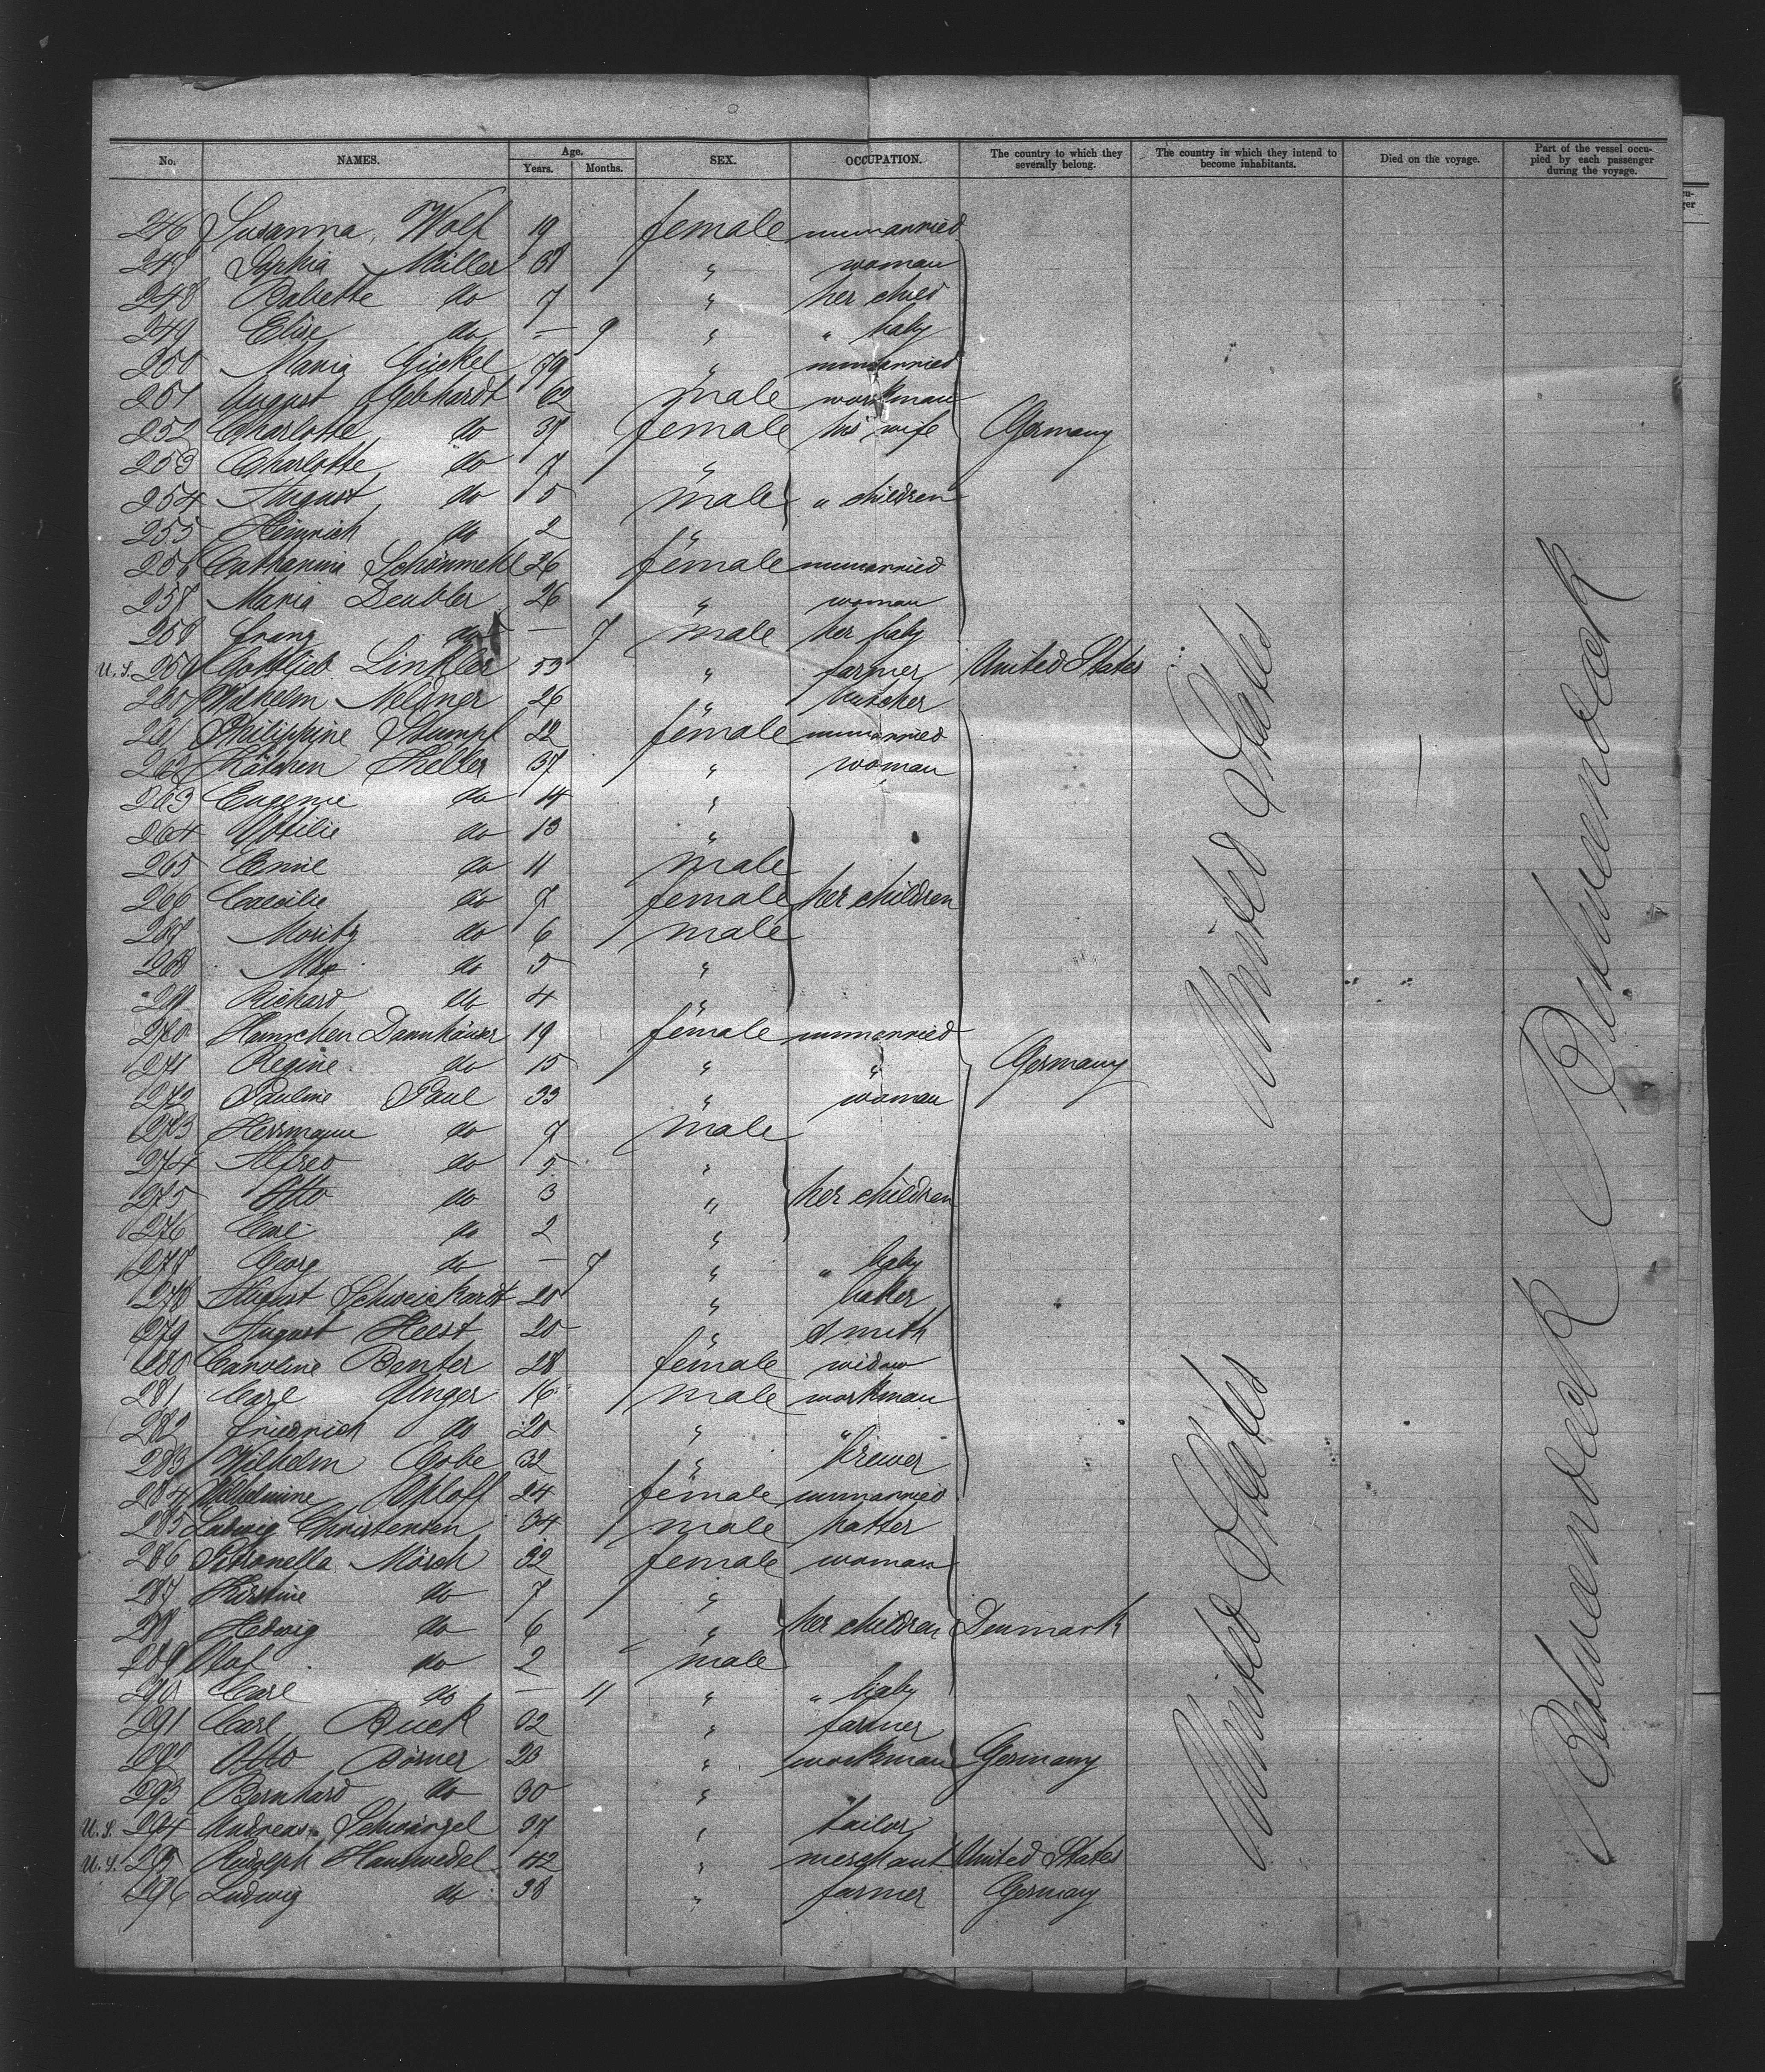 No. NAMES. Age. Years. Months. SEX. OCCUPATION. The country to which they severally belong. The country in which they intend to become inhabitants. Died on the voyage. Part of the vessel occupied by each passenger during the voyage.
246 Susanna Wolf 19 female unmarried
247 Sophia Müller 38 " woman
248 Babette do 7 " her child
249 Elise do — 9 " " baby
250 Maria Gückel 79 " unmarried
251 August Gebhardt 62 male workman
252 Charlotte do 37 female his wife Germany
253 Charlotte do 7 "
254 August do 5 male " children
255 Heinrich do 2 "
256 Catharina Schönmehl 26 female unmarried
257 Maria Deubler 26 " woman
258 Franz do — 7 male her baby
U.S. 259 Gottlieb Linkler 53 " farmer United States
260 Wilhelm Mellner 26 " butcher
261 Philippine Stumpf 22 female unmarried
262 Kätchen Heller 37 " woman
263 Eugenie do 14 "
264 Ottilie do 13 "
265 Emil do 11 male
266 Caecilie do 7 female her children
267 Moritz do 6 male
268 Max do 5 "
269 Richard do 4 "
270 Hannchen Dannhäuser 19 female unmarried
271 Regine do 15 " " Germany
272 Pauline Paul 33 " woman
273 Herrmann do 7 male
274 Alfred do 5 "
275 Otto do 3 " her children
276 Carl do 2 "
277 Georg do — 7 " " baby
278 August Schweickardt 20 " baker
279 August Heest 20 " smith
280 Caroline Benter 28 female widow
281 Carl Unger 16 male workman
282 Friedrich do 20 " "
283 Wilhelm Gobe 32 " brewer
284 Wilhelmine Ohloff 24 female unmarried
285 Ludwig Christensen 34 male hatter
286 Petronella Mörch 32 female woman
287 Kirstine do 7 "
288 Hedwig do 6 " her children Denmark
289 Olaf do 2 male
290 Carl do — 11 " " baby
291 Carl Buck 32 " farmer
292 Otto Dörner 23 " workman Germany
293 Bernhard do 30 "
U.S. 294 Andreas Schwängel 37 " tailor
U.S. 295 Rudolph Hauswedel 42 " merchant United States
296 Ludwig do 38 " farmer Germany
United States
United States
Betweendeck
Betweendeck